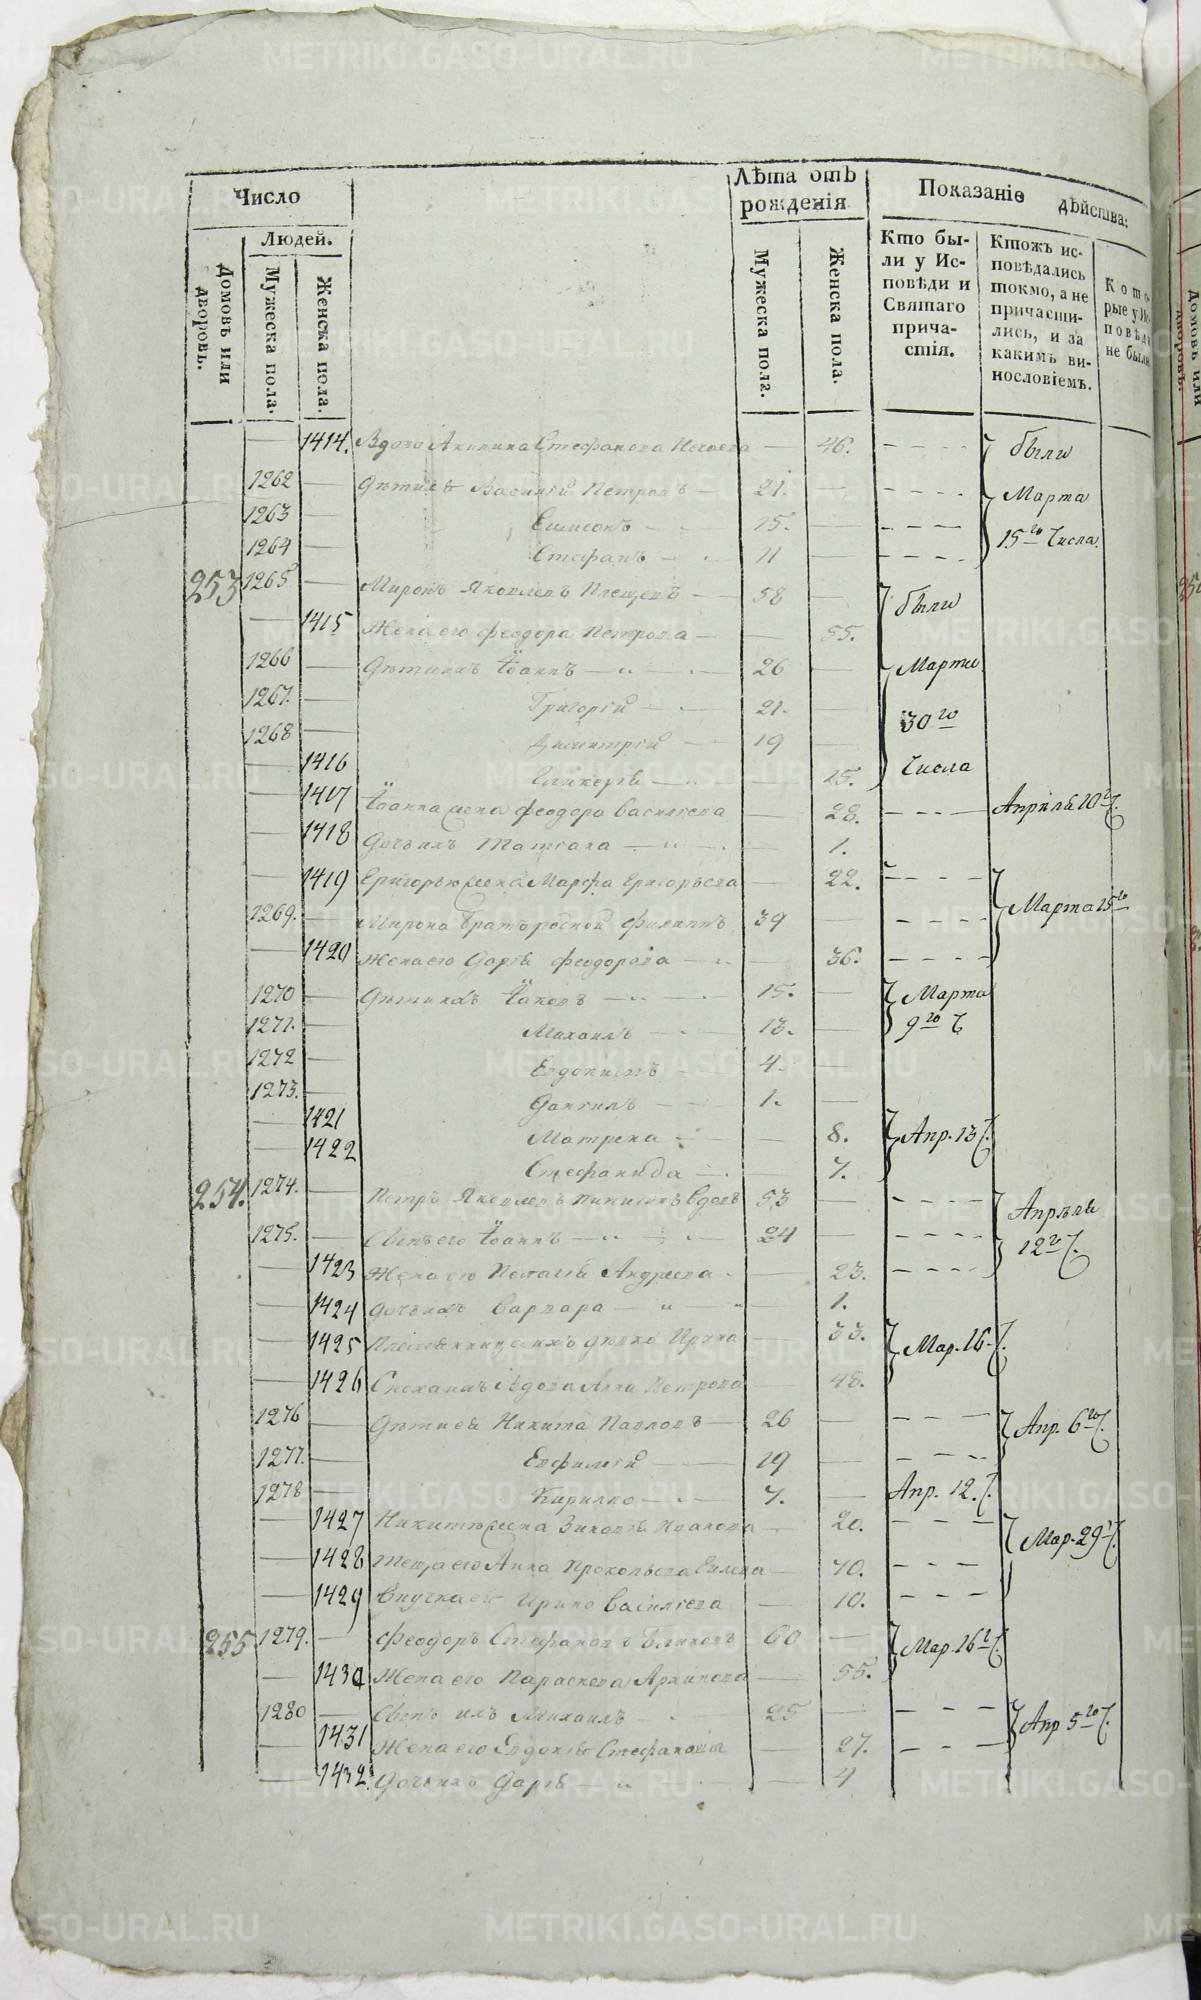 Число
Людей.
Домовъ или дворовъ.
Мужеска пола.
Женска пола.
Лѣта отъ рожденія
Мужеска пола.
Женска пола.
Показаніе дѣйства:
Кто бы-
ли у Ис-
повѣди и
Святаго
прича-
стія.
Ктожъ ис-
повѣдались
токмо, а не
причасти-
лись, и за
какимъ ви-
нословіемъ.
Кото-
рые у Ис-
повѣди
не были
1414. Вдова Акилина Стефанова 46. были
1262 Дѣти ея Василій Петровъ 21. Марта
1263 Симеонъ 15. 15го Числа
1264 Стефанъ 11
253 1265 Миронъ Яковлевъ Плещевъ 58 были
1415 Жена его Феодора Петрова 55.
1266 Дѣти ихъ Іоаннъ 26 Марта
1267. Григорій 21. 30го
1268 Димитрій 19
1416 Гликерія 15. Числа
1417 Іоанна жена Феодора Васильева 28. Апрѣля 10го Ч.
1418 Дочь ихъ Татіана 1.
1419 Григорья жена Марфа Григорьева 22.
1269. Мирона братъ родной Филиппъ 39 Марта 15го
1420 Жена его Дарія Феодорова 36.
1270 Дѣти ихъ Іаковъ 15. Марта
1271. Михаилъ 13. 9го Ч
1272 Евдокимъ 4.
1273. Даніилъ 1.
1421 Матрена 8. Апр. 13 Ч.
1422 Стефанида 7.
254. 1274. Петръ Яковлевъ Никитинъ вдовъ 53 Апрѣля
1275. Сынъ его Іоаннъ 24 12го Ч.
1423 Жена его Пелагія Андреева 23.
1424 Дочь ихъ Варвара 1.
1425 дѣвка Ирина 33. Мар. 16 Ч.
1426 Сноха ихъ вдова Анна Петрова 48.
1276 Дѣти ея Никита Павловъ 26 Апр. 6го Ч.
1277. Евфимій 19
1278 Кирилло 7. Апр. 12. Ч.
1427 Никиты жена Зиновія Иванова 20. Мар. 29го Ч.
1428 Теща его Анна Прокопьева 70.
1429 Внучка ея Ирина Васильева 10.
255 1279. Феодоръ Стефановъ Блиновъ 60 Мар. 16го Ч.
1430 Жена его Параскева Архипова 55.
1280 Сынъ ихъ Михаилъ 25 Апр 5го Ч.
1431 Жена его Евдокія Стефанова 27.
1432. Дочь ихъ Дарія 4
METRIKI.GASO-URAL.RU